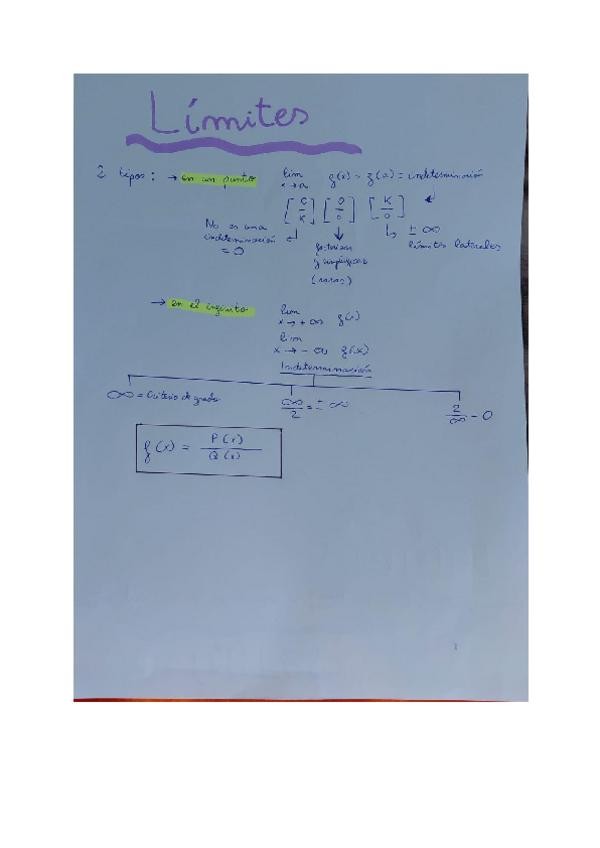 Límites
2 tipos: → en un punto lim x→a f(x) = f(a) = indeterminación
[0/K] [0/0] [K/0]
No es una indeterminación = 0
factorizar y simplificar (raíces)
↳ ± ∞ límites laterales
→ en el infinito lim x→+∞ f(x)
lim x→-∞ f(x)
Indeterminación
∞ = Criterio de grados ∞/2 = ± ∞ 2/∞ = 0
f(x) = P(x)/Q(x)
1